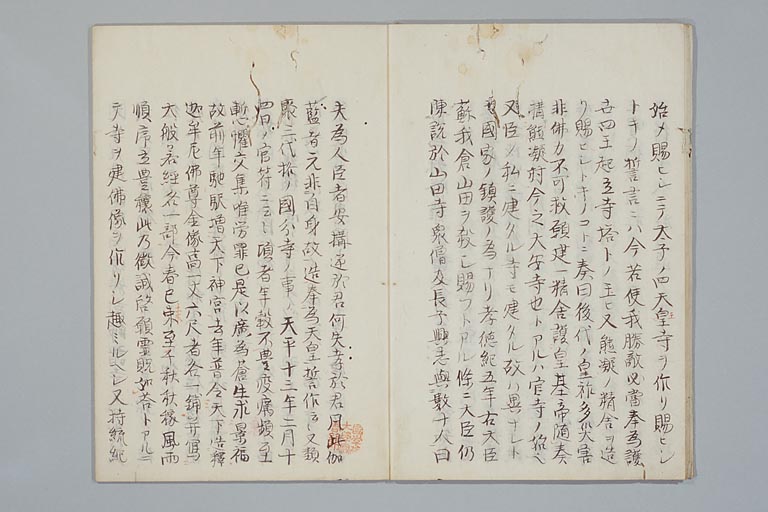 始メ賜ヒシニテ太子ノ四天皇寺ヲ作リ賜ヒシ
トキノ誓言ニハ今若使我勝敵必當奉為護
世四王起立寺塔トノ玉ヒ又熊凝ノ精舎ヲ造
リ賜ヒシトキノコトニ奏曰後代ノ皇祚多災害
非佛力不可救願建一精舎護皇基帝随奏
搆熊凝村今之大安寺也トアルハ官寺ノ始也
又臣ノ私ニ建タル寺モ建タル故ハ異ナレト
國家ノ鎮護ノ為ナリ孝徳紀五年右大臣
蘇我倉山田ヲ殺シ賜フトアル條ニ大臣仍
陳説於山田寺衆僧及長子興志與數十人曰
夫為人臣者安搆逆於君何失孝於父凡此伽
藍者元非自身故造奉為天皇誓作云々又類
聚三代格ノ國分寺ノ事ノ天平十三年二月十
四日ノ官符ニ云々頃者年穀不豊疫癘頻至
慙懼交集唯労罪己是以廣為蒼生求景福
故前年馳駅増天下神宮去年普令天下造釋
迦牟尼佛尊金像高一丈六尺者各一鋪并寫
大般若經各一部今春已来至于秋秋稼風雨
順序五豊穣此乃徴誠啓願靈貺如荅トアルニ
テ寺ヲ建佛像ヲ作リシ趣ミルヘシ又持統紀